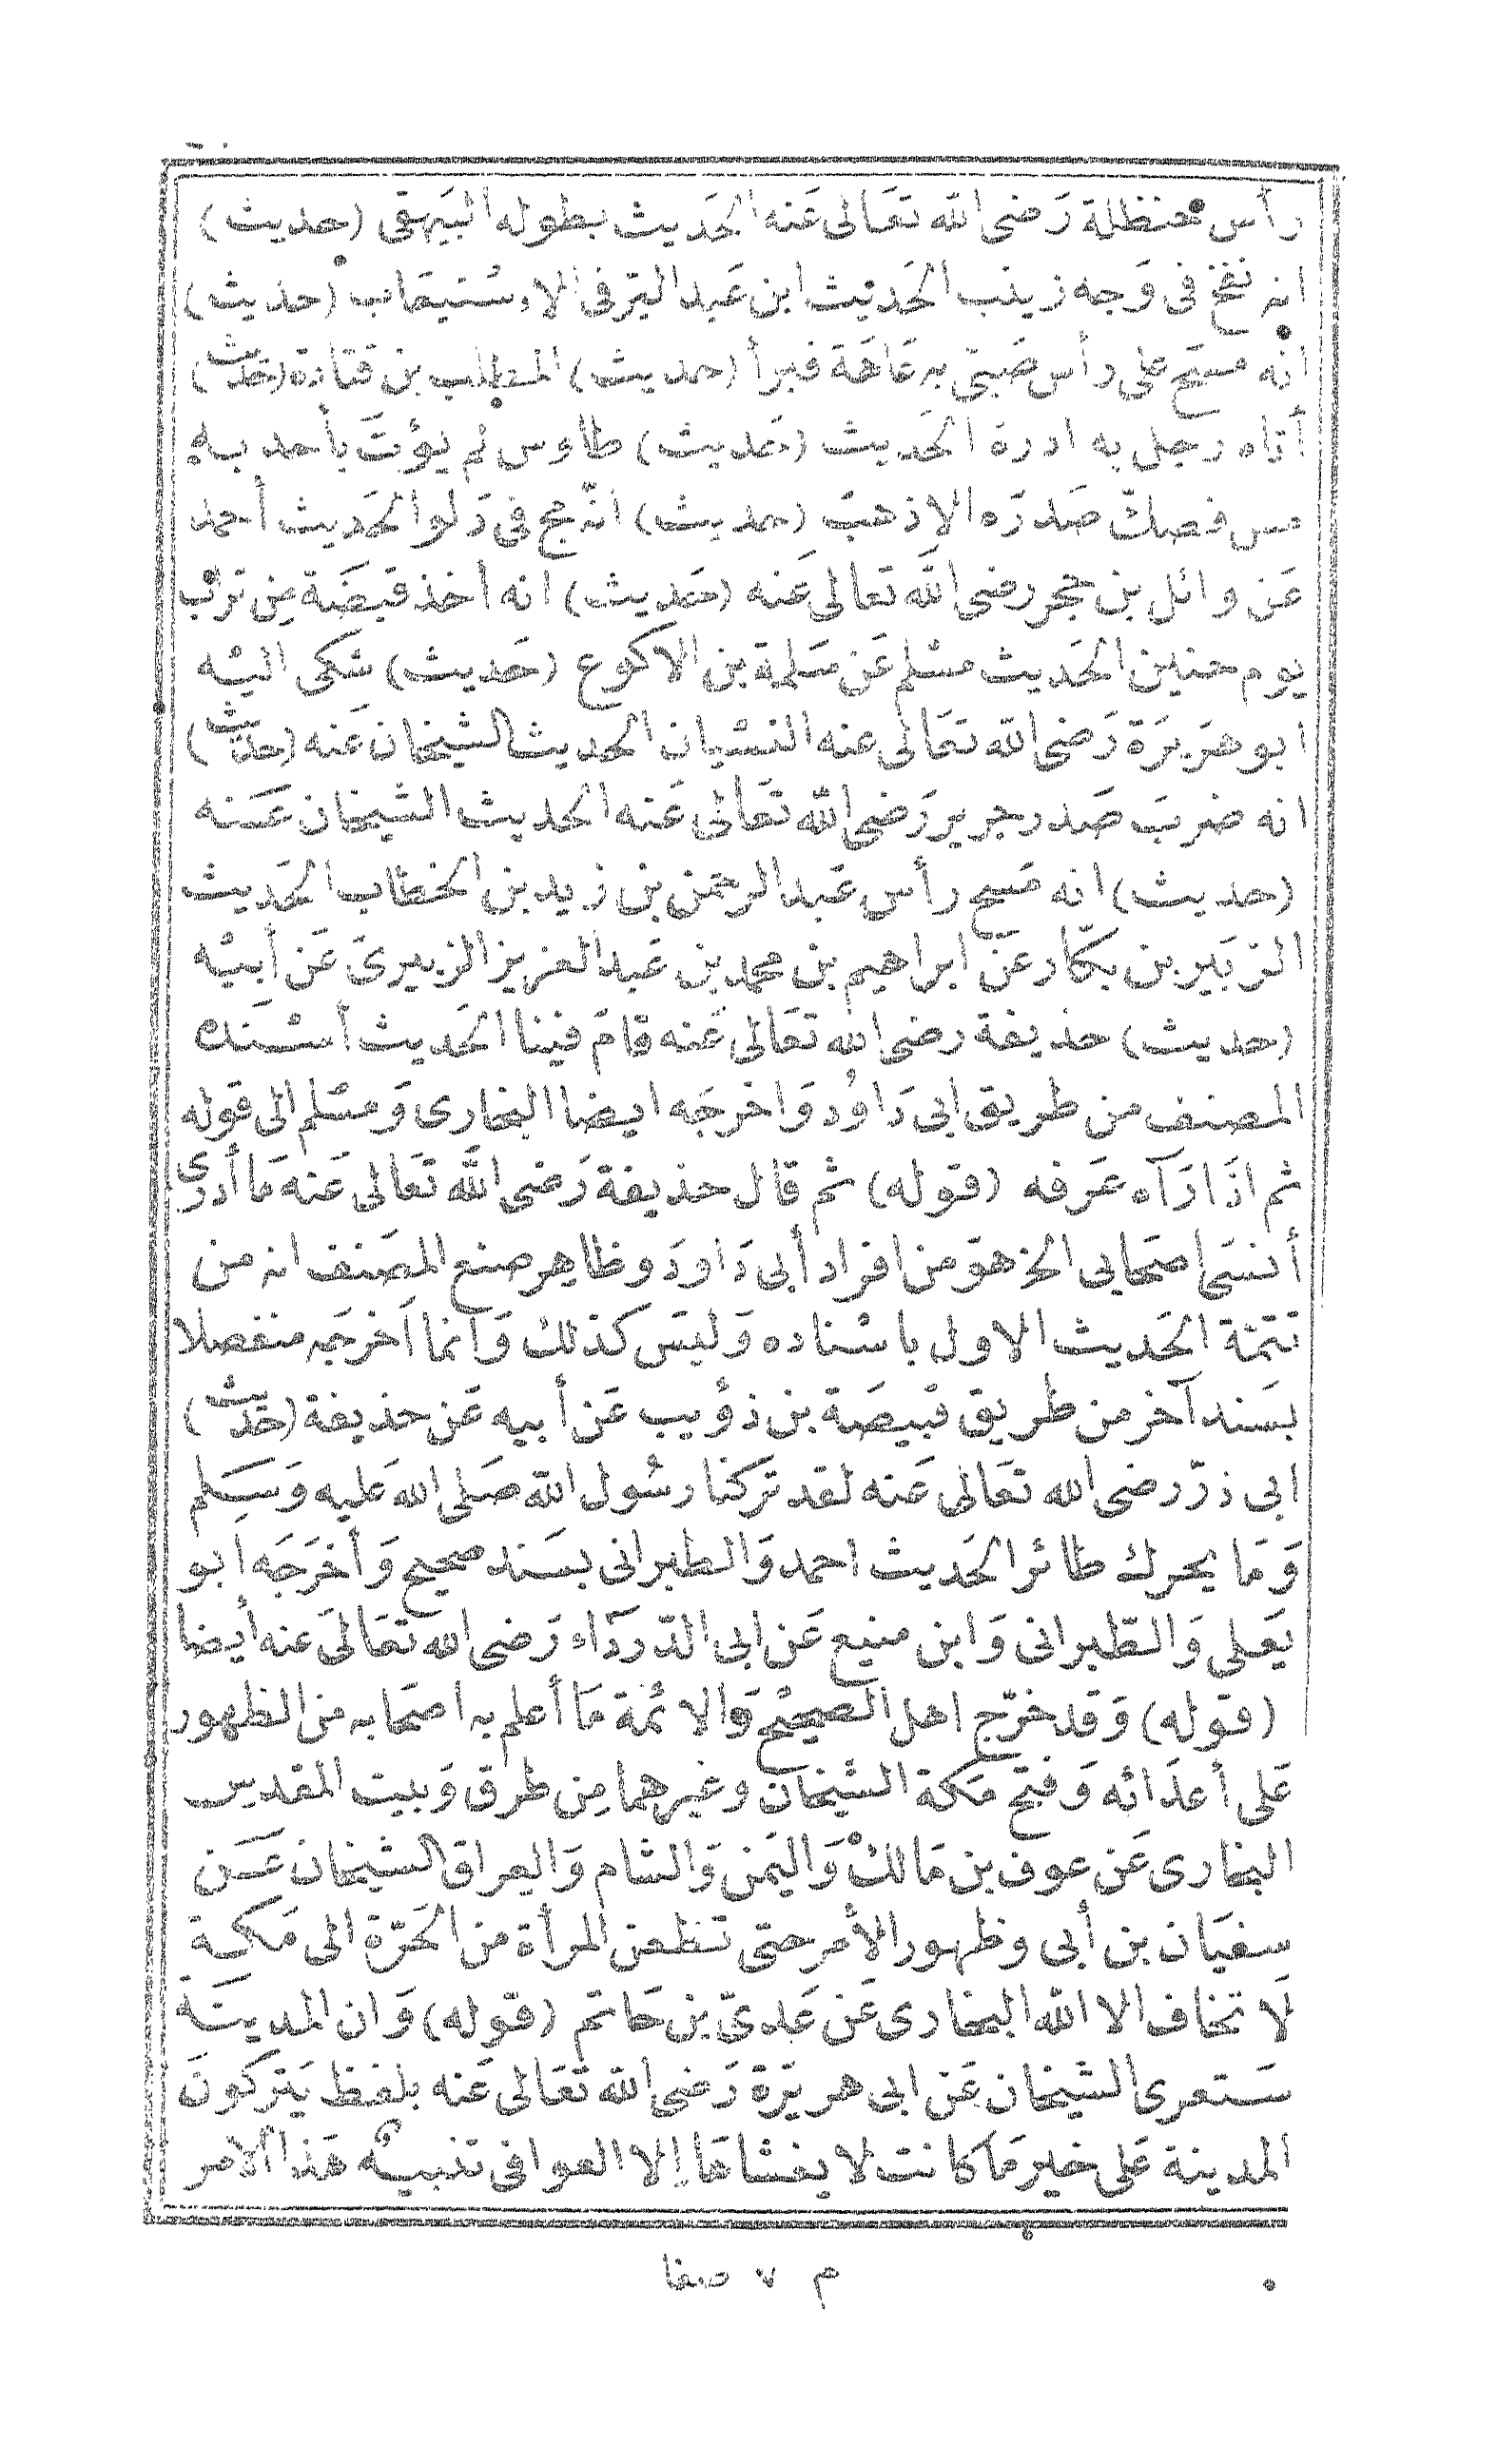 رأس حنظلة رَضى الله تعَالى عَنه الحَديث بطوله البَيهقى (حديث)
انه نفخ فى وَجه زينب الحَديث ابن عَبد البرّ فى الاِستيعَاب (حديث)
انه مسَح على رأس صَبىّ به عَاهَة فبرأ (حديث) المطلب بن قتادة (حَديث)
أتاه رجل به ادرة الحَديث (حَديث) طاوس لم يؤتَ بأحد به
مس فصكّ صَدرَه الا ذهبَ (حديث) انه مج فى دَلو الحَديث أحمد
عَن وائل بن حجر رضى الله تعالى عَنه (حَديث) انه أخذ قبضَة مِن تراب
يوم حنين الحَديث مسْلم عَن سَلمة بن الاكوع (حَديث) شكى اليْه
ابو هرَيرَة رَضى الله تعَالى عنه النسْيان الحديث الشيخان عَنه (حديث)
انه ضربَ صَدر جرير رَضى الله تعَالى عَنه الحديث الشيخان عَنه
(حديث) انه مَسح رأس عَبد الرحمن بن زيد بن الخطاب الحَديث
الزبَير بن بكّار عَن ابراهيم بن محمد بن عَبد العزيز الزبيرىّ عَن أبيْه
(حديث) حذيفة رضى الله تعَالى عَنه قامَ فينا الحَديث أسْنَده
المصنف من طريق ابى دَاوُد وَاخرجَه ايضا البخارى وَمسْلم الى قوله
ثم اذَا رَآه عَرفه (قوله) ثم قال حذيفة رَضى الله تعَالى عَنه مَا أدرى
أنسَى اصحَابى الخ هوَ من افراد أبى دَاودَ وظاهر صنع المصَنف انه من
تتمّة الحَديث الاول باسْناده وَليسَ كذلك وَانما اَخرجَه منفصلا
بسَند آخر من طريق قبيصَة بن ذؤيب عَن أبيه عَن حذيفة (حَديث)
ابى ذرّ رضى الله تعَالى عَنه لقد تركنا رسُول الله صَلى الله عَليه وَسَلم
وَمَا يحرك طائر الحَديث احمد وَالطبرانى بسَند صحيح وَأخرَجَه ابو
يَعلى وَالطّبرانى وَابن منيع عَن ابى الدّردَاء رَضى الله تعَالىَ عنه أيضا
(قوله) وَقد خرّج اهل الصحيْح وَالائمة مَا أعلم به اصحَابه من الظهور
عَلى أعدَائه وَفتح مَكة الشيخان وغيرهما مِن طرق وَبيت المقدس
البخارى عَن عوف بن مَالك وَاليَمن وَالشام وَالعراق الشيخان عَن
سفيَان بن أبى وظهور الأمر حتى تظعن المرأة من الحَرّة الى مَكة
لَا تخاف الا الله البخارى عَن عَدىّ بن حَاتم (قوله) وَان المدينَة
سَتعرى الشيخان عَن ابى هريرَة رَضى الله تعَالى عَنه بلفظ يَتركونَ
المدينة عَلى خير مَا كانت لا يغشاهَا إلا العوافى تنبيْه هَذا الأمر
م ٧ صفا